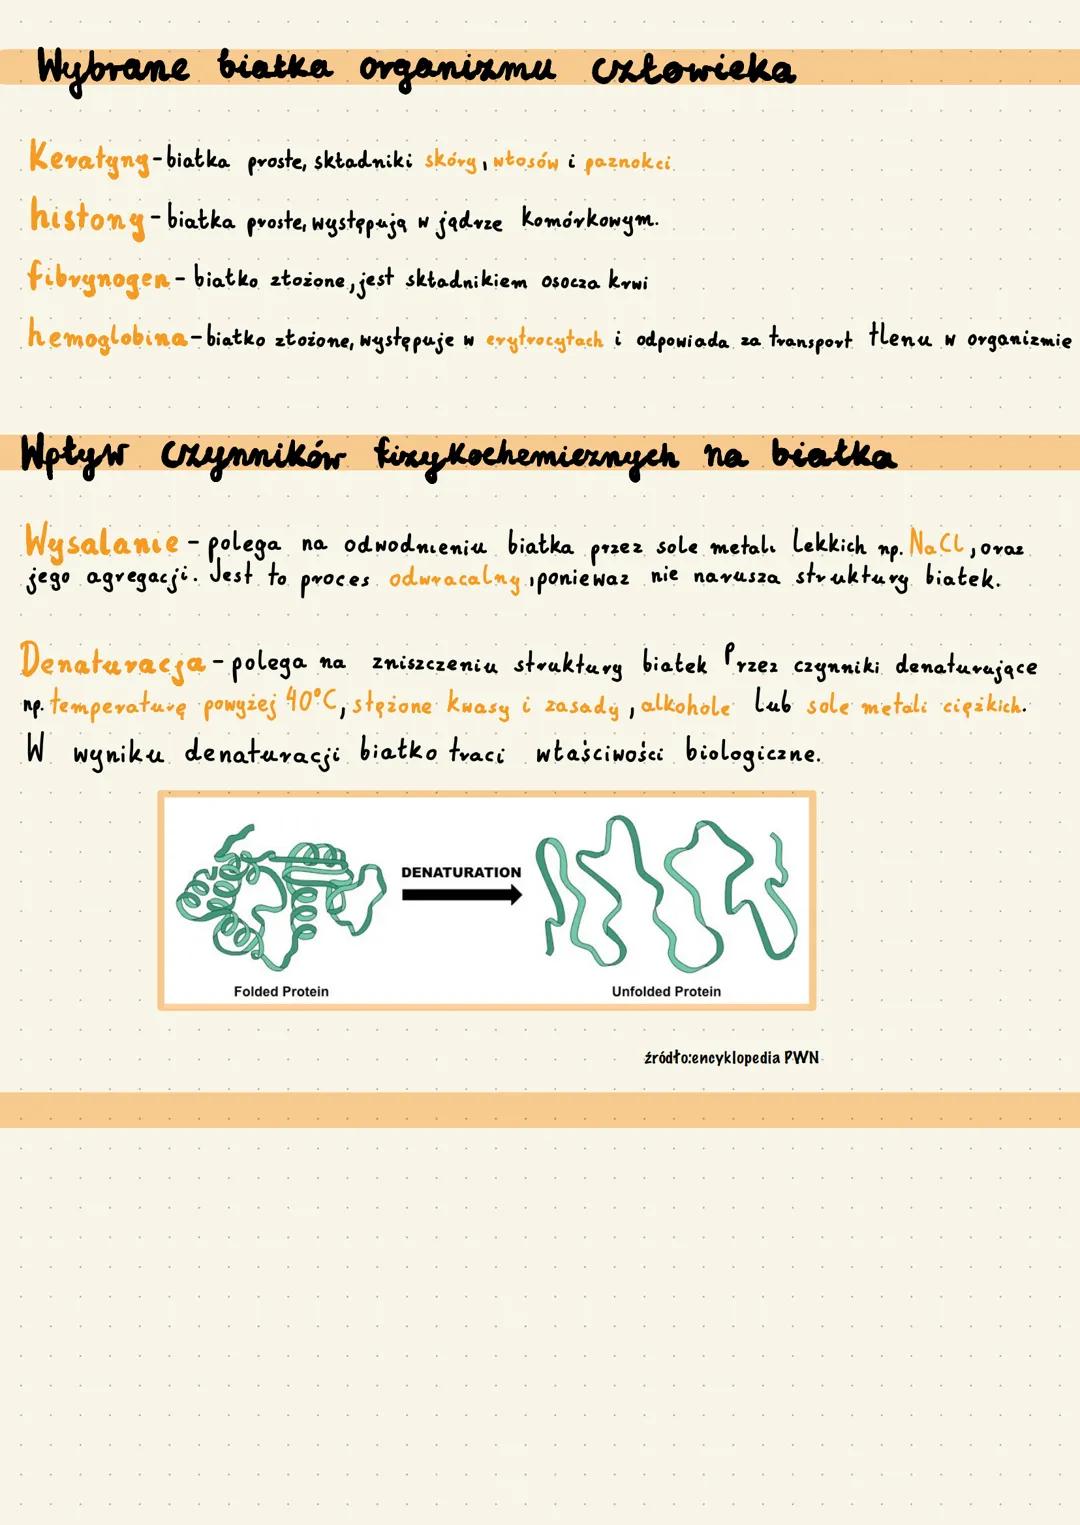 Wybrane białka organizmu człowieka
Keratyny - białka proste, składniki skóry, włosów i paznokci
histony - białka proste, występują w jądrze komórkowym.
fibrynogen - białko złożone, jest składnikiem osocza krwi
hemoglobina - białko złożone, występuje w erytrocytach i odpowiada za transport tlenu w organizmie
Wpływ czynników fizykochemicznych na białka
Wysalanie - polega na odwodnieniu białka przez sole metali lekkich np. NaCl, oraz
jego agregacji. Jest to proces odwracalny, ponieważ nie narusza struktury białek.
Denaturacja - polega na zniszczeniu struktury białek Przez czynniki denaturujące
np. temperaturę powyżej 40°C, stężone kwasy i zasady, alkohole lub sole metali ciężkich.
W wyniku denaturacji białko traci właściwości biologiczne.
DENATURATION
Folded Protein Unfolded Protein
źródło:encyklopedia PWN